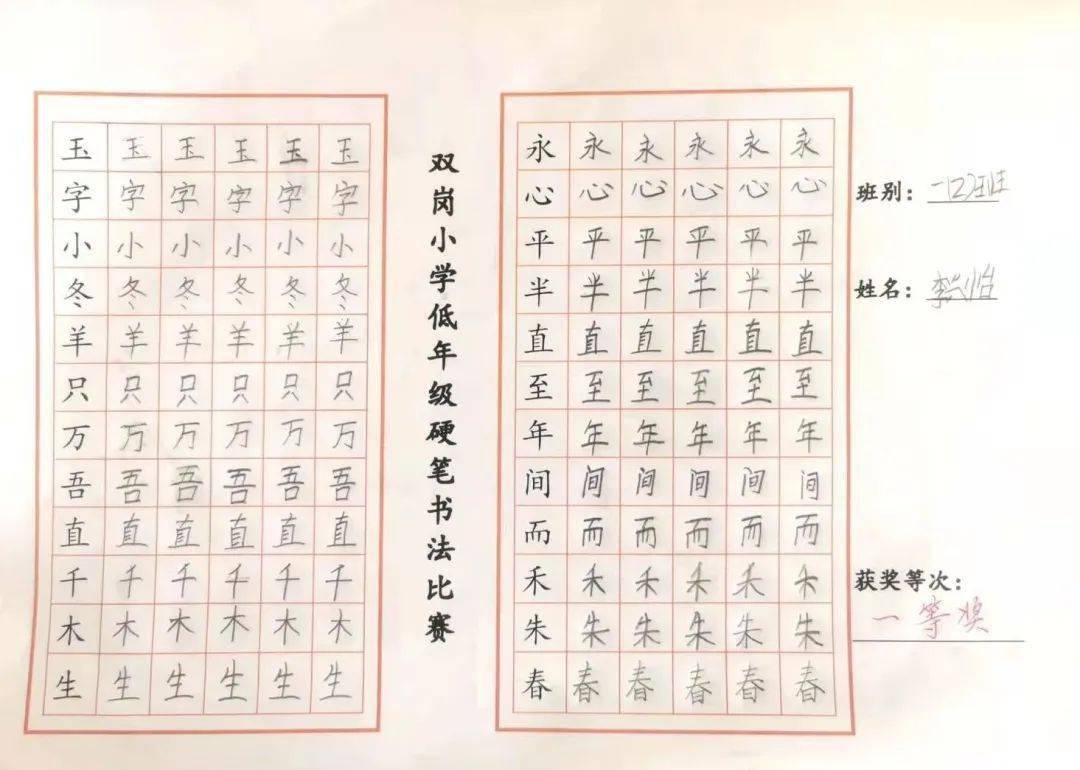 玉玉玉玉玉玉
字字字字字字
小小小小小小
冬冬冬冬冬冬
羊羊羊羊羊羊
只只只只只只
万万万万万万
吾吾吾吾吾吾
直直直直直直
千千千千千千
木木木木木木
生生生生生生
双岗小学低年级硬笔书法比赛
永永永永永永
心心心心心心
平平平平平平
半半半半半半
直直直直直直
至至至至至至
年年年年年年
间间间间间间
而而而而而而
禾禾禾禾禾禾
朱朱朱朱朱朱
春春春春春春
班别：一(2)班
姓名：李兴怡
获奖等次：
一等奖